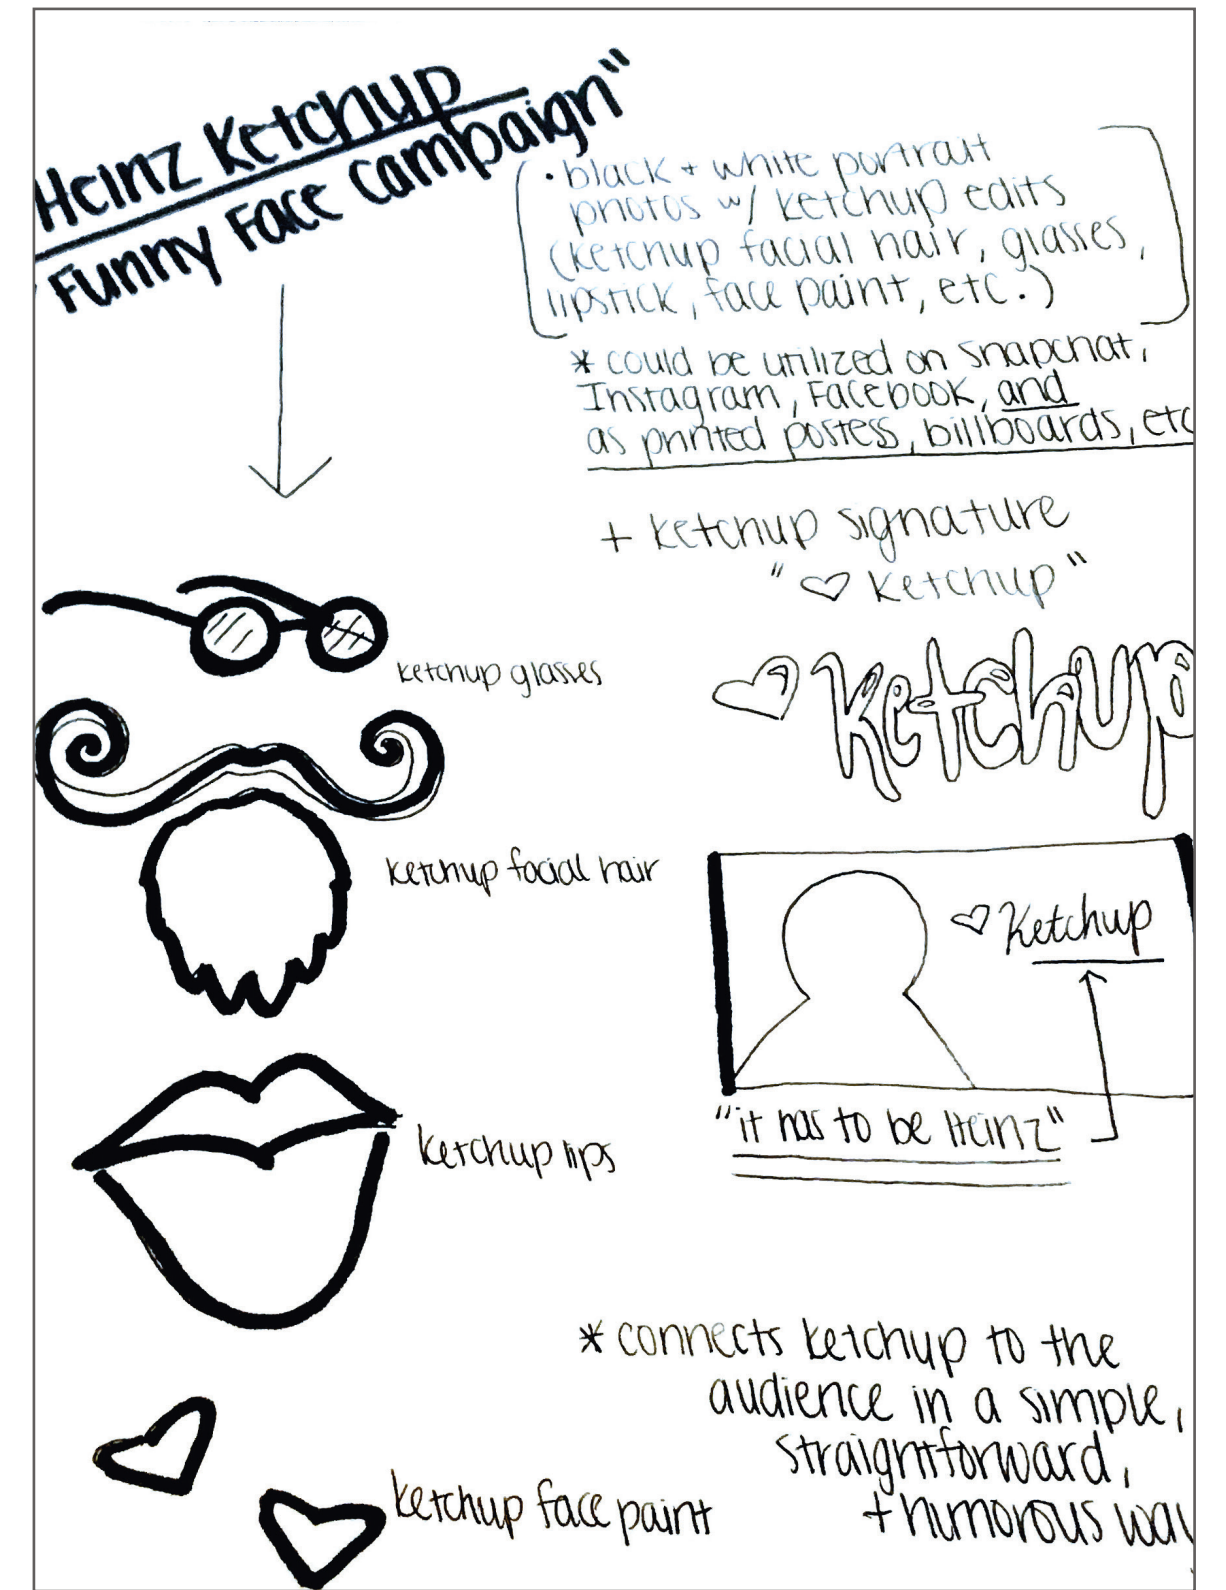 Heinz Ketchup
Funny Face Campaign"
• black + white portrait
photos w/ ketchup edits
(ketchup facial hair, glasses,
lipstick, face paint, etc.)
* could be utilized on snapchat,
Instagram, Facebook, and
as printed postess, billboards, etc
+ ketchup signature
"♡ Ketchup"
♡ Ketchup
ketchup glasses
ketchup facial hair
♡ Ketchup
"it has to be Heinz"
ketchup lips
* connects ketchup to the
audience in a simple,
straightforward,
+ humorous way
ketchup face paint